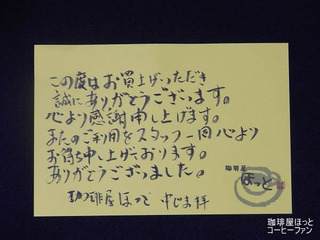 この度はお買上げいただき
誠にありがとうございます。
心より感謝申し上げます。
またのご利用をスタッフ一同心より
お待ち申し上げております。
ありがとうございました。
珈琲屋ほっと 中じま拝
珈琲屋
ほっと
珈琲屋ほっと
コーヒーファン